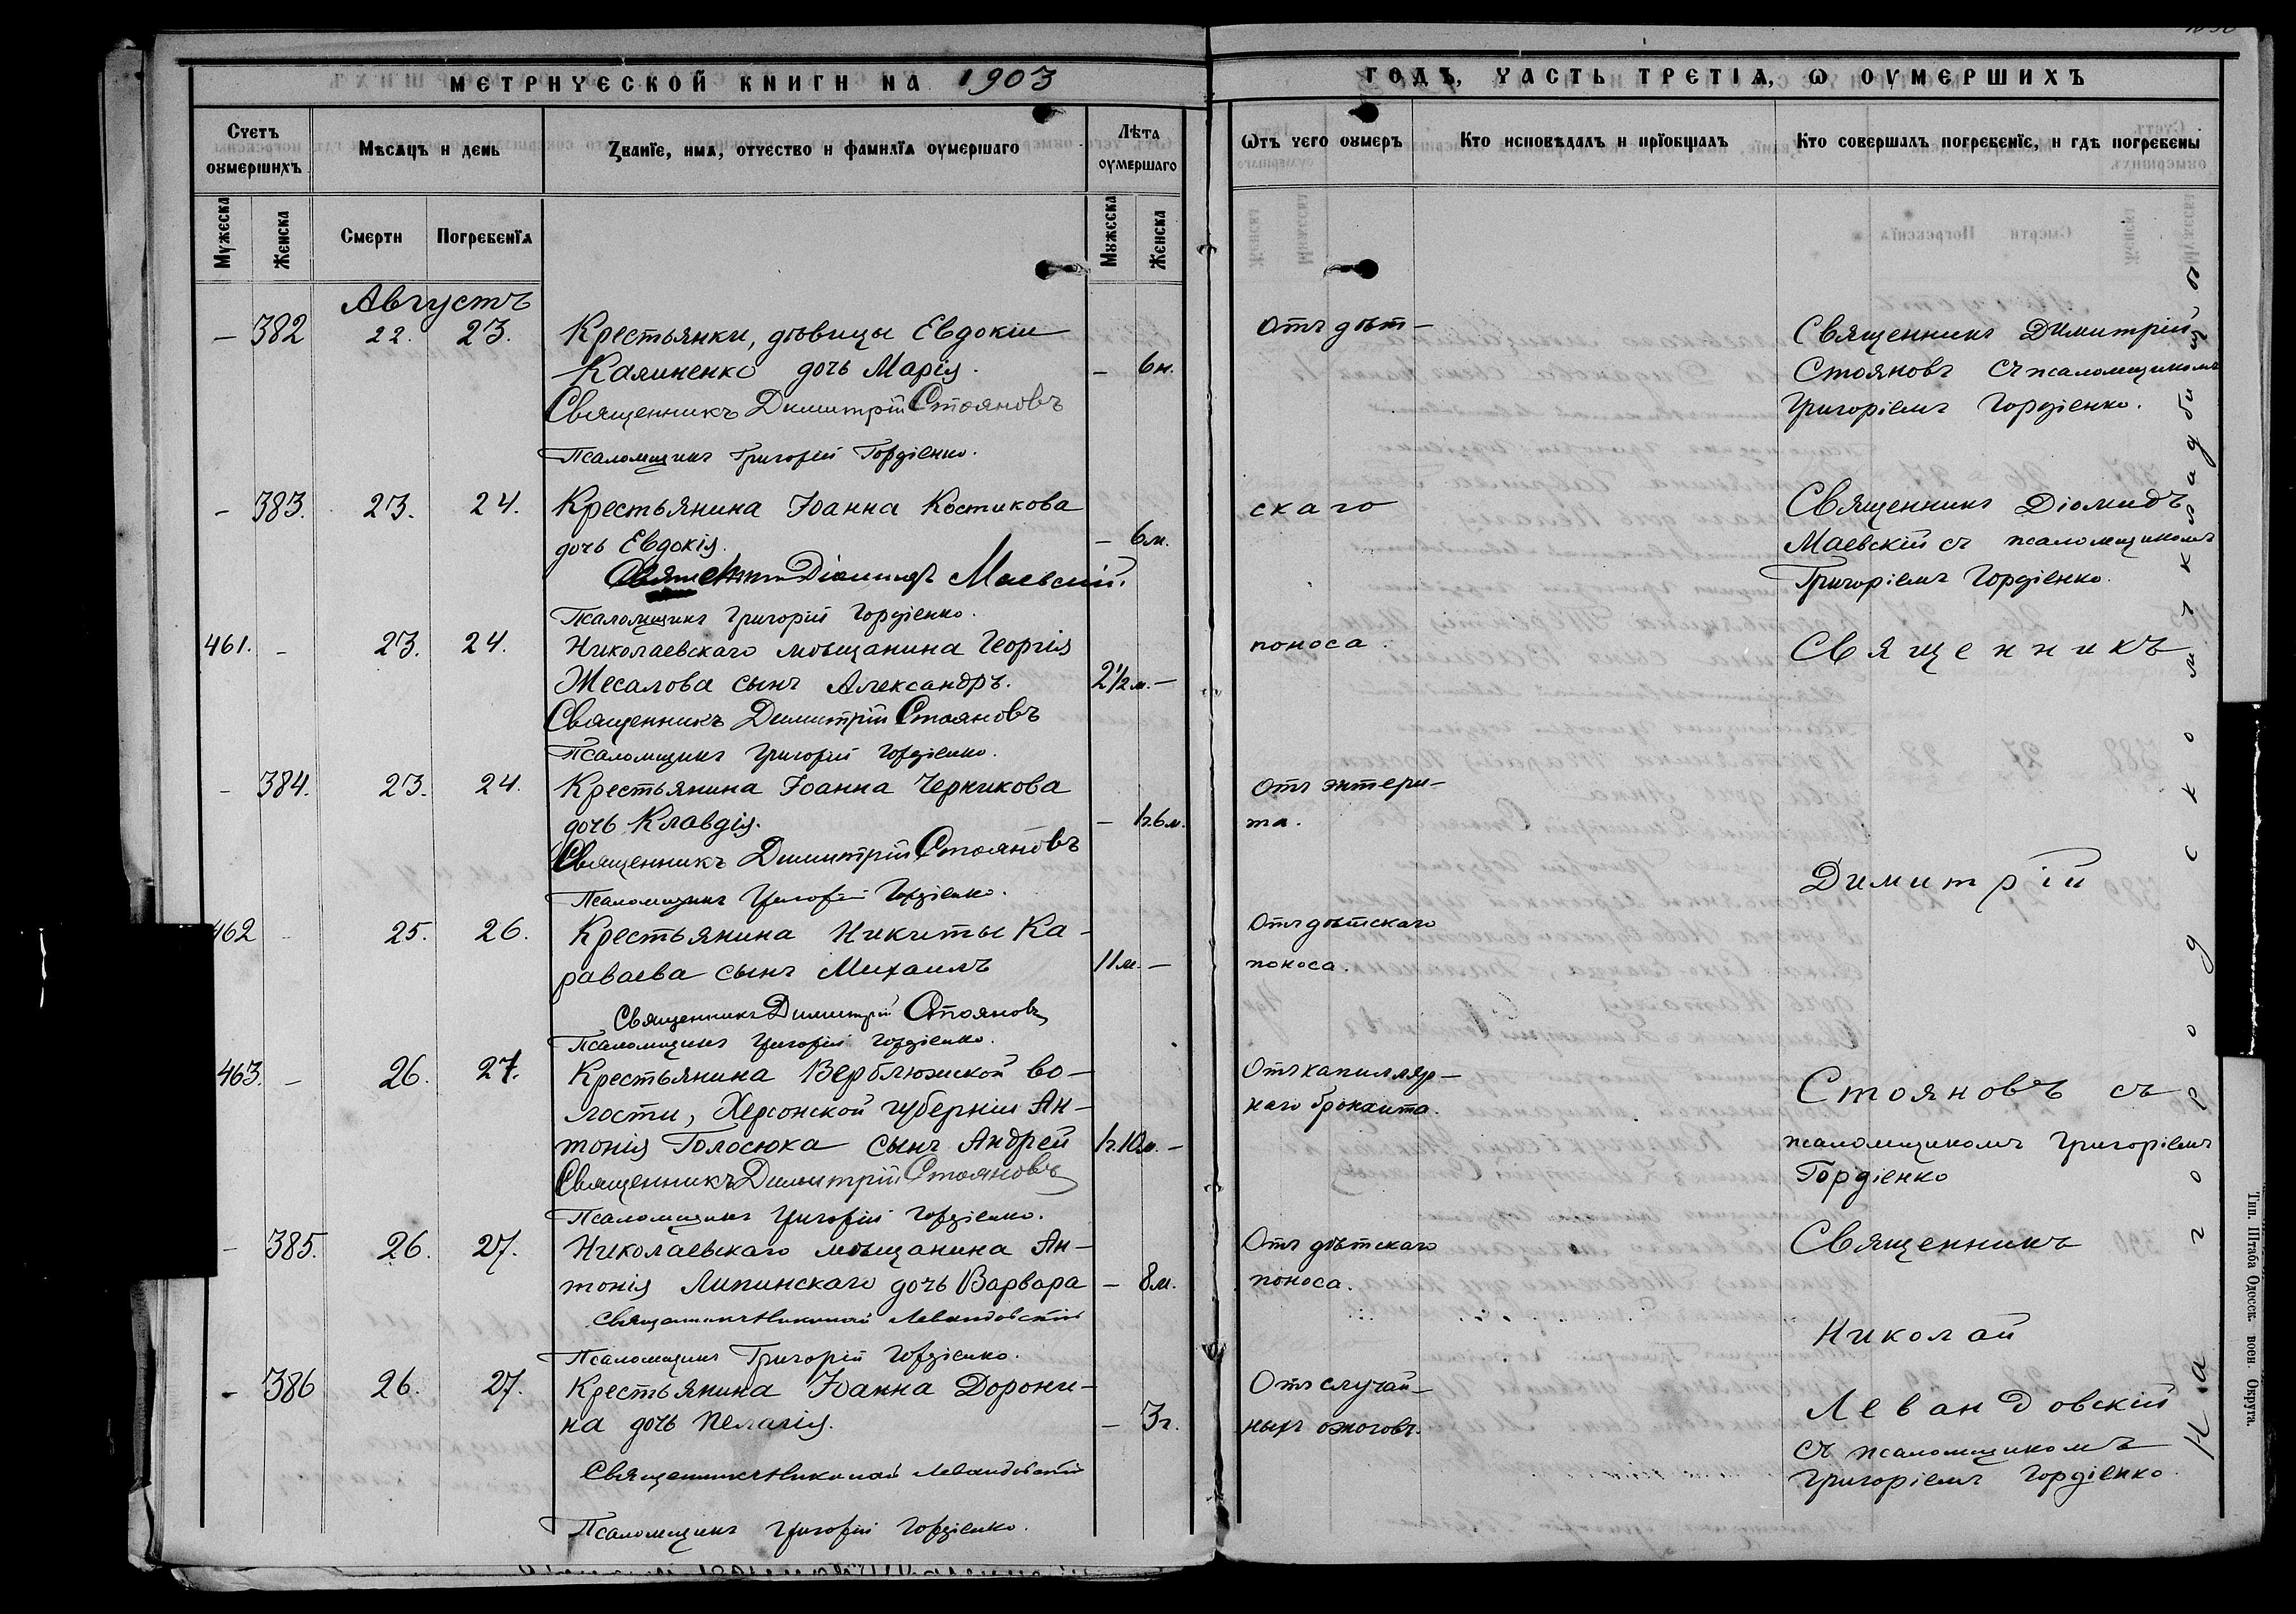 МЕТРИЧЕСКОЙ КНИГИ НА 1903
ГОДЪ, ЧАСТЬ ТРЕТІЯ, Ѡ ОУМЕРШИХЪ
Счетъ оумершихъ
Мѣсяцъ и день
Званїе, имя, отчество и фамилїя оумершаго
Лѣта оумершаго
Ѿтъ чего оумеръ
Кто исповѣдалъ и прїобщалъ
Кто совершалъ погребенїе, и гдѣ погребены
Мужеска
Женска
Смерти
Погребенїя
Мужеска
Женска
Августъ
— 382 22. 23. Крестьянки, дѣвицы Евдокіи
Калиненко дочь Марія. — 6н.
Священникъ Димитрій Стояновъ
Псаломщикъ Григорій Гордіенко.
Отъ дѣт-
Священникъ Димитрій
Стояновъ съ псаломщикомъ
Григоріемъ Гордіенко.
— 383. 23. 24. Крестьянина Іоанна Костикова
дочь Евдокія. — 6м.
Діомидъ Маевскій.
Псаломщикъ Григорій Гордіенко.
скаго
Священникъ Діомидъ
Маевскій съ псаломщикомъ
Григоріемъ Гордіенко.
461. — 23. 24. Николаевскаго мѣщанина Георгія
Жесалова сынъ Александръ. 2½м. —
Священникъ Димитрій Стояновъ
Псаломщикъ Григорій Гордіенко.
поноса.
Священникъ
— 384. 23. 24. Крестьянина Іоанна Черникова
дочь Клавдія. — 1г.6м.
Священникъ Димитрій Стояновъ
Псаломщикъ Григорій Гордіенко.
Отъ энтери-
та.
Димитрій
462 — 25. 26. Крестьянина Никиты Ка-
раваева сынъ Михаилъ 11м. —
Священникъ Димитрій Стояновъ
Псаломщикъ Григорій Гордіенко.
Отъ дѣтскаго
поноса.
463. — 26. 27. Крестьянина Верблюжской во-
лости, Херсонской губерніи Ан-
тонія Голосюка сынъ Андрей 1г.10м. —
Священникъ Димитрій Стояновъ
Псаломщикъ Григорій Гордіенко.
Отъ капилляр-
наго бронхита.
Стояновъ съ
псаломщикомъ Григоріемъ
Гордіенко
— 385. 26. 27. Николаевскаго мѣщанина Ан-
тонія Липинскаго дочь Варвара — 8м.
Священникъ Николай Левандовскій
Псаломщикъ Григорій Гордіенко.
Отъ дѣтскаго
поноса.
Священникъ
Николай
— 386 26. 27. Крестьянина Іоанна Дорони-
на дочь Пелагія. — 3г.
Священникъ Николай Левандовскій
Псаломщикъ Григорій Гордіенко.
Отъ случай-
ныхъ ожоговъ.
Левандовскій
съ псаломщикомъ
Григоріемъ Гордіенко.
На городскомъ кладбищѣ
Тип. Штаба Одесск. воен. Округа.